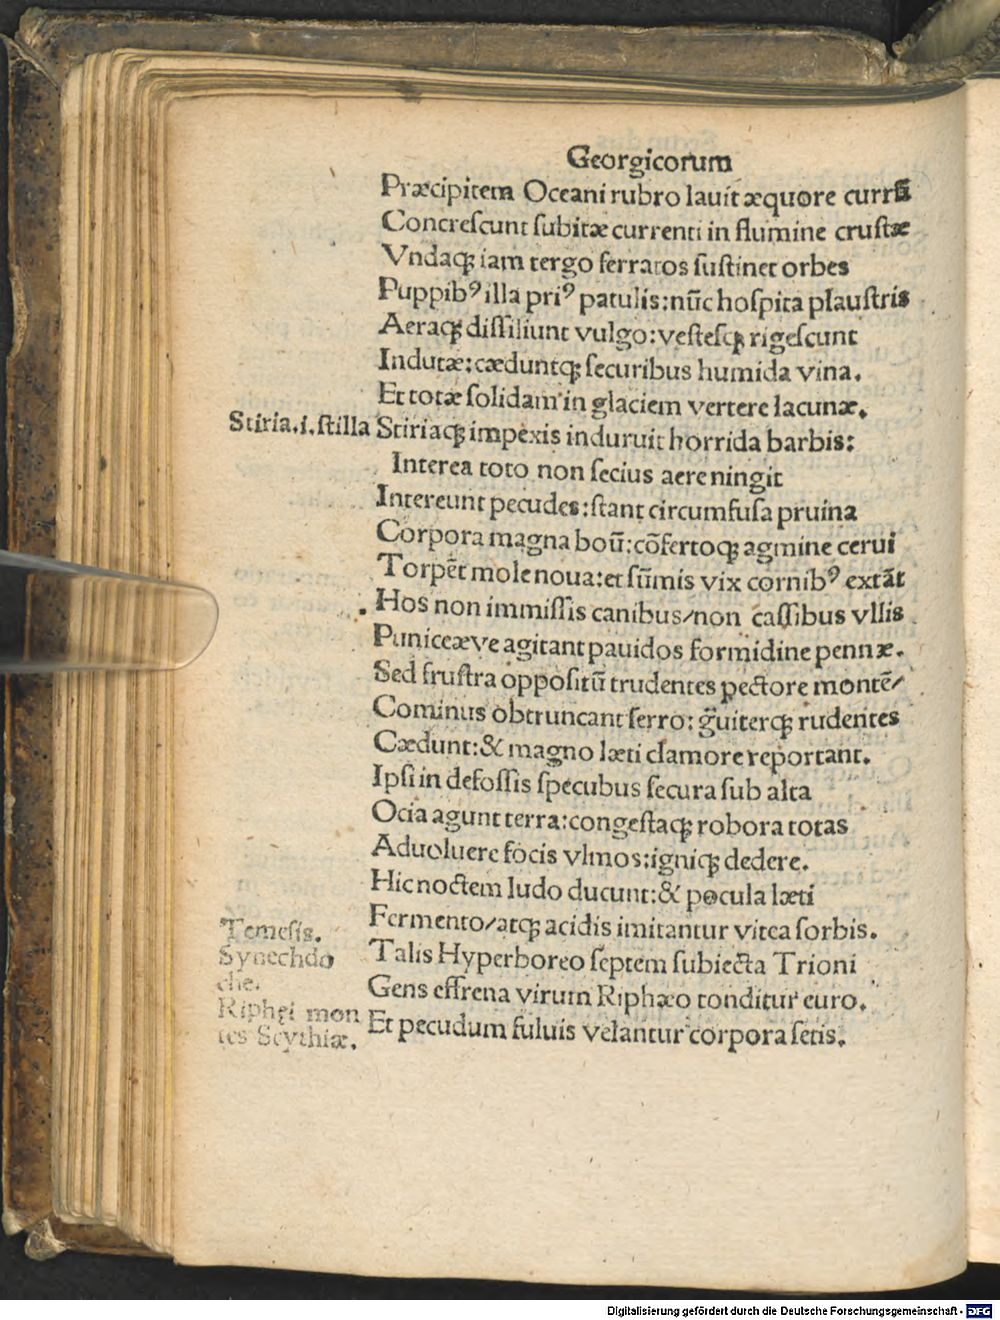 Georgicorum
Præcipitem Oceani rubro lauit æquore currū
Concreſcunt ſubitæ currenti in flumine cruſtæ
Vndaq; iam tergo ferratos ſuſtinet orbes
Puppibꝰ illa priꝰ patulis:nūc hoſpita plauſtris
Aeraq; diſſiliunt vulgo:veſteſq; rigeſcunt
Indutæ:cæduntq; ſecuribus humida vina.
Et totæ ſolidam in glaciem vertere lacunæ.
Stiria.i.ſtilla Stiriaq; impexis induruit horrida barbis:
Interea toto non ſecius aere ningit
Intereunt pecudes:ſtant circumfuſa pruina
Corpora magna boū:cōfertoq; agmine cerui
Torpēt mole noua:et ſūmis vix cornibꝰ extāt
Hos non immiſſis canibus/non caſſibus vllis
Puniceæve agitant pauidos formidine pennæ.
Sed fruſtra oppoſitū trudentes pectore montē/
Cominus obtruncant ferro: g̃uiterq; rudentes
Cædunt:& magno læti clamore reportant.
Ipſi in defoſſis ſpecubus ſecura ſub alta
Ocia agunt terra:congeſtaq; robora totas
Aduoluere focis vlmos:igniq; dedere.
Hic noctem ludo ducunt:& pocula læti
Fermento/atq; acidis imitantur vitea ſorbis.
Temeſis.
Synechdo
che.
Talis Hyperboreo ſeptem ſubiecta Trioni
Gens effrena virum Riphæo tonditur euro.
Riphęi mon
tes Scythiæ.
Et pecudum fuluis velantur corpora ſetis.
Digitalisierung gefördert durch die Deutsche Forschungsgemeinschaft - DFG